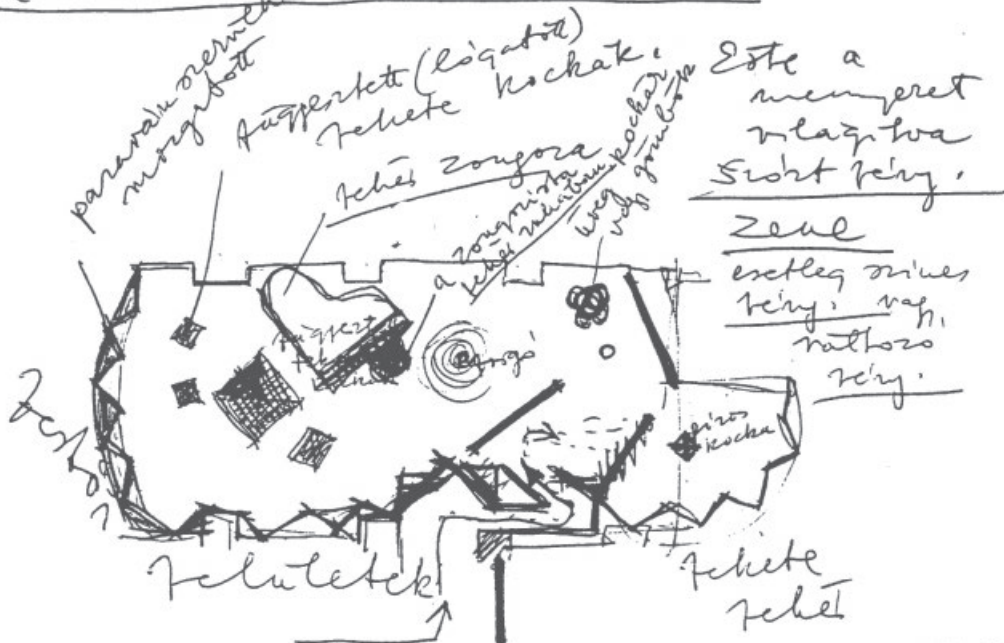 paraván szerűen
mozgatott
függesztett (lógatott)
fekete kockák.
fehér zongora
a zongorista
fehér ruhában
kockák
üveg
vagy gömbök
Este a
mennyezet
világítva
Szórt fény.
Zene
esetleg színes
fény. vagy
változó
fény.
függeszt
piros
kocka
felületek
fekete
fehér